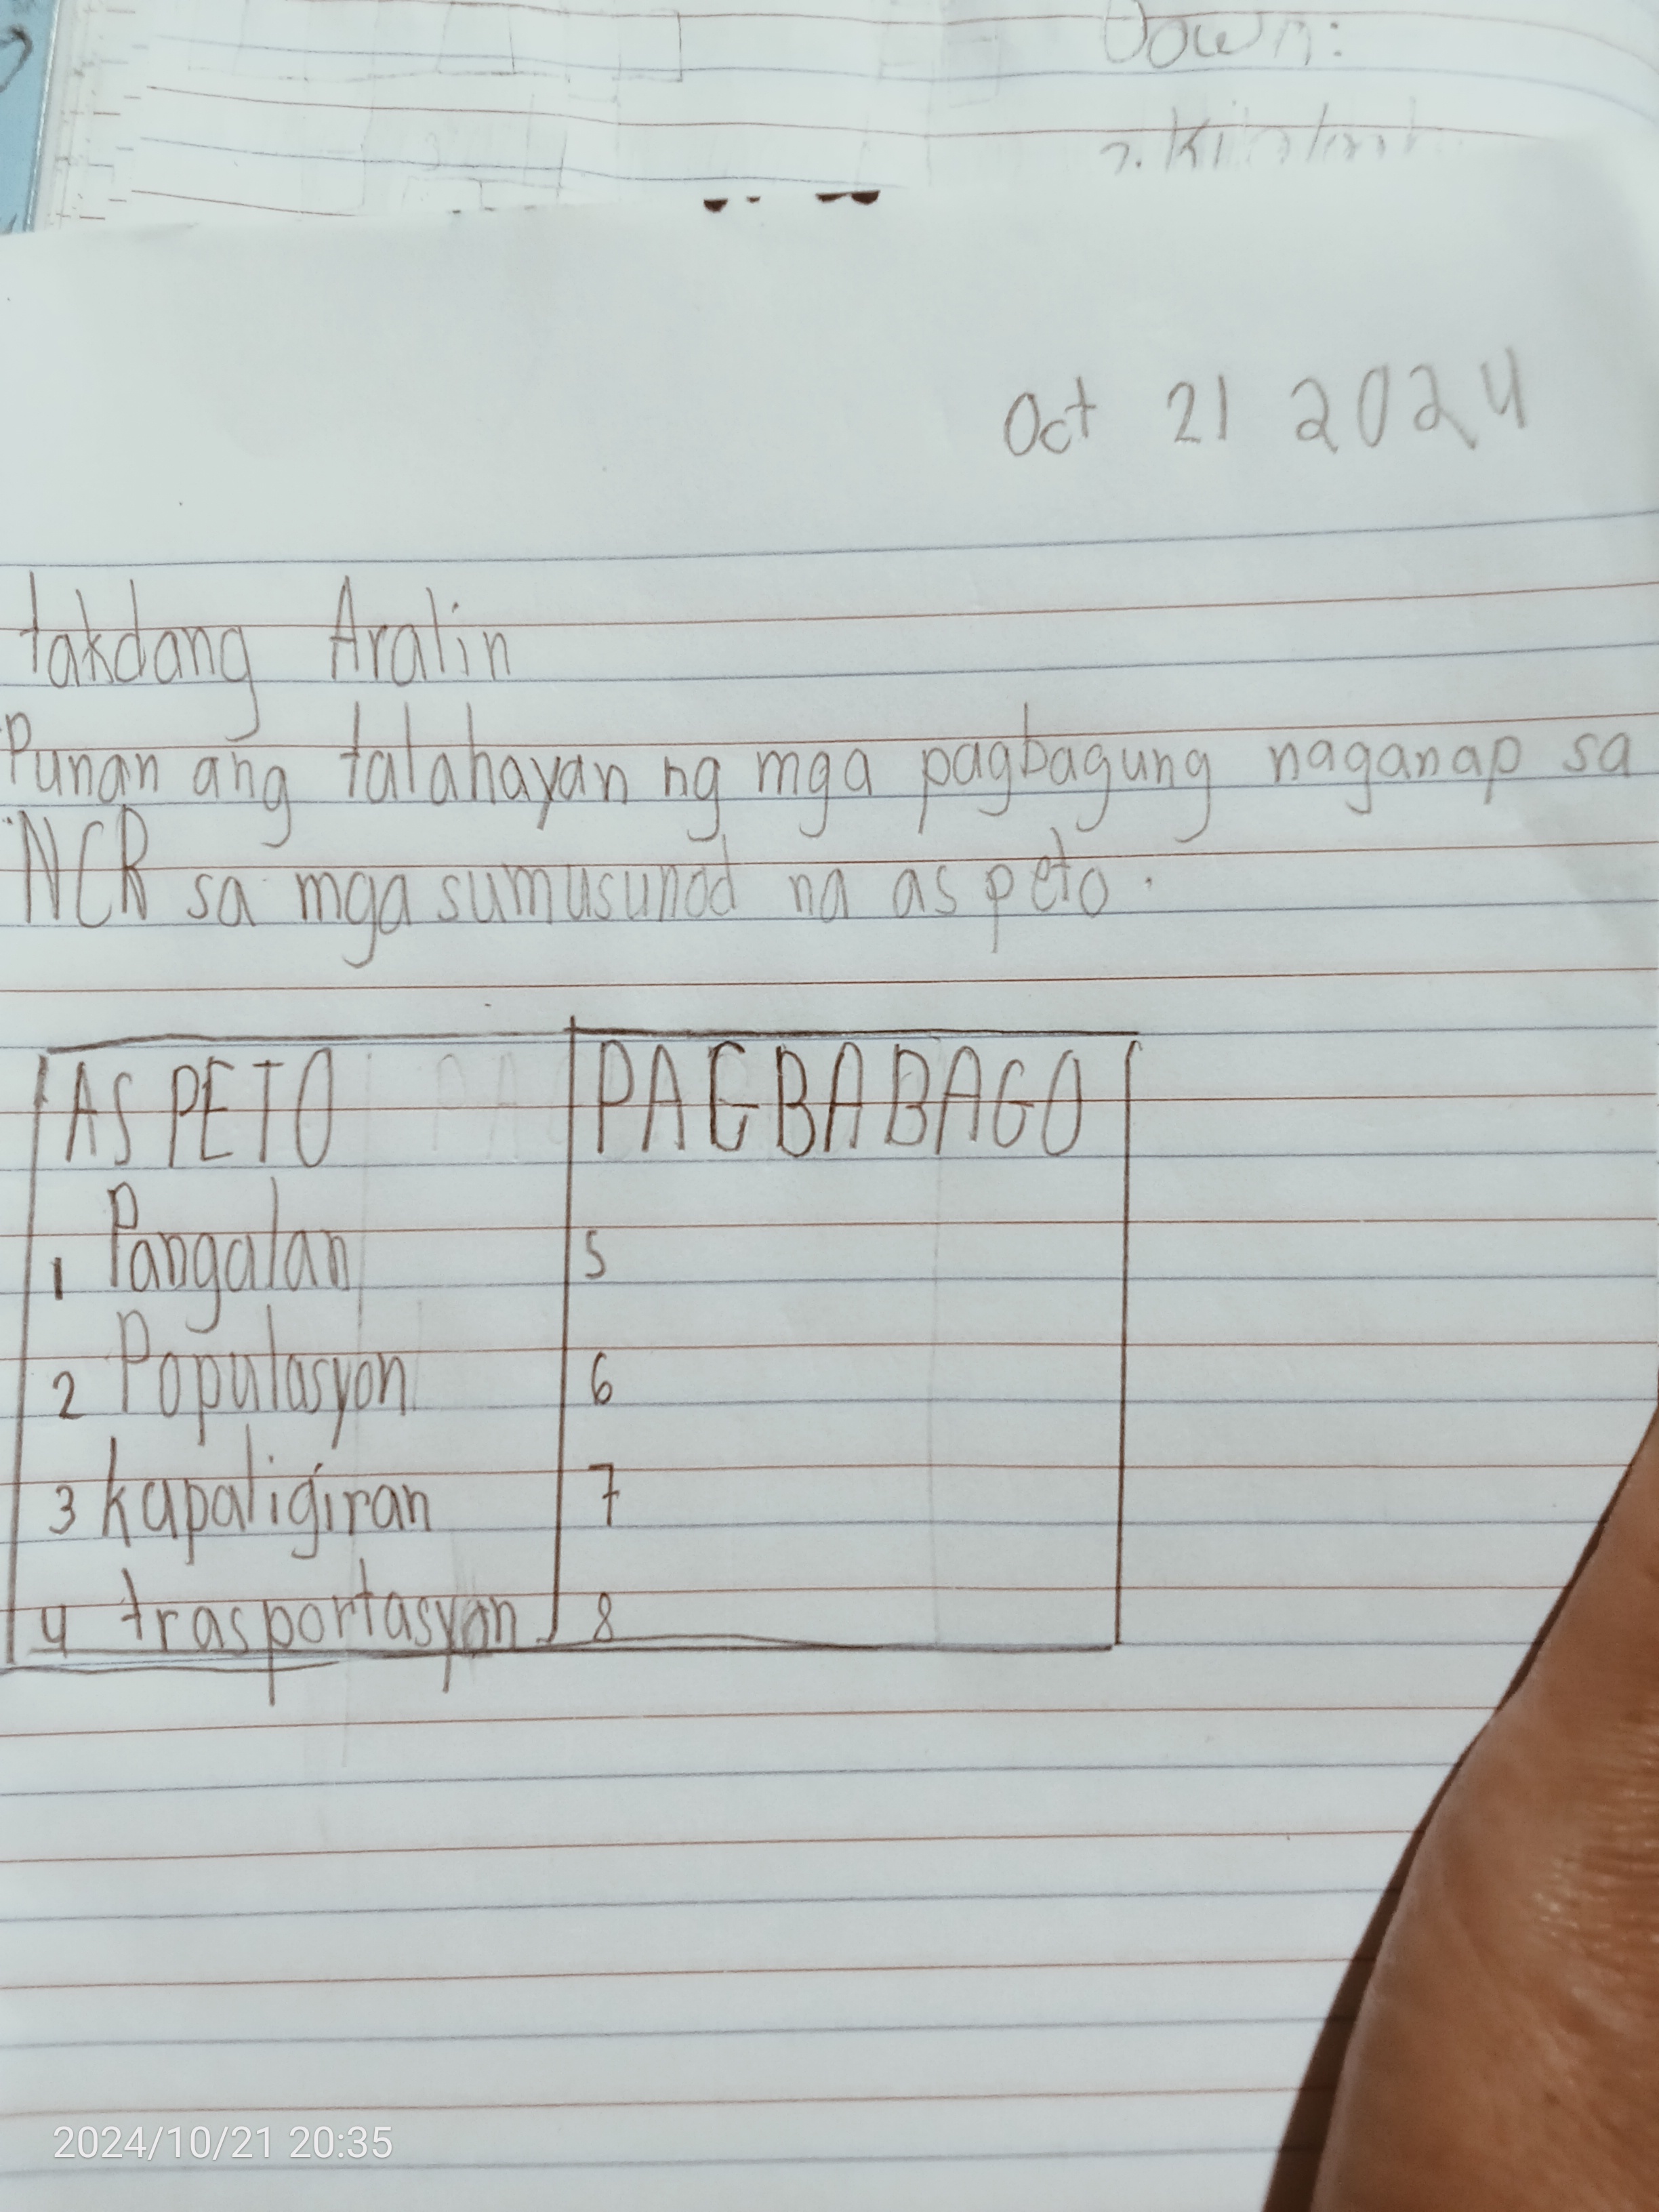 Down:
Oct 21 2024
takdang Aralin
Punan ang talahayan ng mga pagbagung naganap sa
NCR sa mga sumusunod na aspeto.
ASPETO PAGBABAGO
1 Pangalan 5
2 Populasyon 6
3 kapaligiran 7
4 trasportasyon 8
2024/10/21 20:35